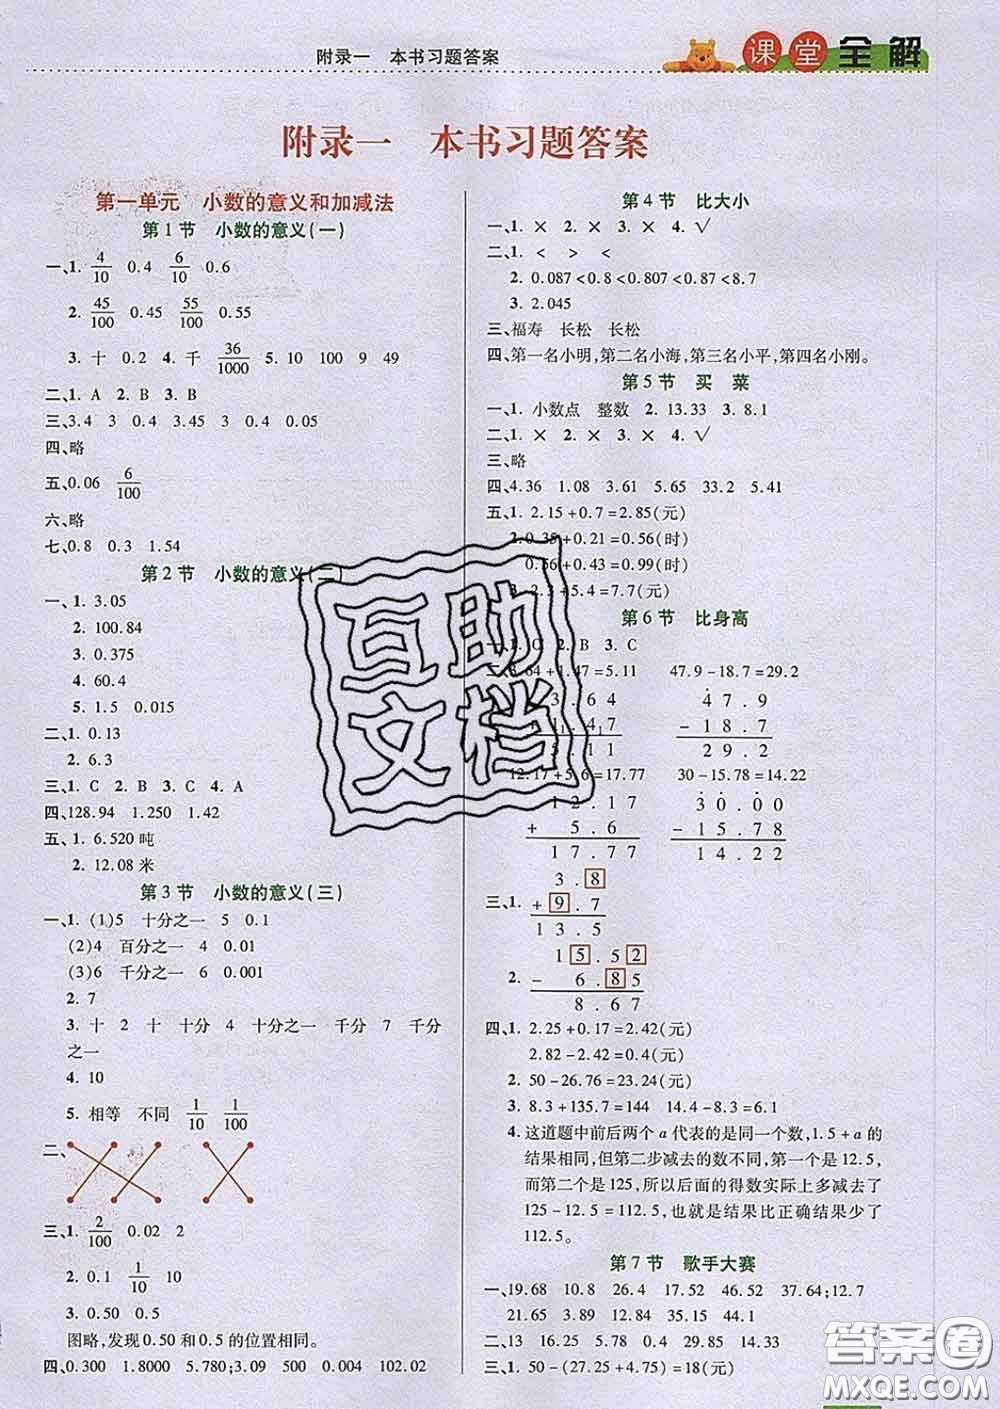 附录一 本书习题答案
课堂全解
附录一 本书习题答案
第一单元 小数的意义和加减法
第1节 小数的意义(一)
一、1. 4/10 0.4 6/10 0.6
2. 45/100 0.45 55/100 0.55
3. 十 0.2 4. 千 36/1000 5. 10 100 9 49
二、1. A 2. B 3. B
三、3.4 3 0.4 3.45 3 0.4 0.05
四、略
五、0.06 6/100
六、略
七、0.8 0.3 1.54
第2节 小数的意义(二)
一、1. 3.05
2. 100.84
3. 0.375
4. 60.4
5. 1.5 0.015
二、1. 0.13
2. 6.3
三、1. C 2. B 3. C 4. A
四、128.94 1.250 1.42
五、1. 6.520吨
2. 12.08米
第3节 小数的意义(三)
一、1. (1)5 十分之一 5 0.1
(2)4 百分之一 4 0.01
(3)6 千分之一 6 0.001
2. 7
3. 十 2 十 十分 4 十分之一 千分 7 千分
之一
4. 10
5. 相等 不同 1/10 1/100
二、
三、1. 2/100 0.02 2
2. 0.1 1/10 10
3. 0.50 0.5
图略,发现0.50和0.5的位置相同。
四、0.300 1.8000 5.780;3.09 500 0.004 102.02
第4节 比大小
一、1. × 2. × 3. × 4. √
二、1. < > <
2. 0.087<0.8<0.807<0.87<8.7
3. 2.045
三、福寿 长松 长松
四、第一名小明,第二名小海,第三名小平,第四名小刚。
第5节 买 菜
一、1. 小数点 整数 2. 13.33 3. 8.1
二、1. × 2. × 3. × 4. √
三、略
四、4.36 1.08 3.61 5.65 33.2 5.41
五、1. 2.15+0.7=2.85(元)
2. 0.35+0.21=0.56(时)
0.56+0.43=0.99(时)
+5.4=7.7(元)
第6节 比身高
一、1. C 2. B 3. C
二、3.64+1.47=5.11 47.9-18.7=29.2
3.64 47.9
1.47 -18.7
5.11 29.2
12.17+5.6=17.77 30-15.78=14.22
12.17 30.00
+ 5.6 -15.78
17.77 14.22
3.8
三、1. +9.7
13.5
15.52
2. - 6.85
8.67
四、1. 2.25+0.17=2.42(元)
2.82-2.42=0.4(元)
2. 50-26.76=23.24(元)
3. 8.3+135.7=144 14.4-8.3=6.1
4. 这道题中前后两个a代表的是同一个数,1.5+a的
结果相同,但第二步减去的数不同,第一个是12.5,
而第二个是125,所以后面的得数实际上多减去了
125-12.5=112.5,也就是结果比正确结果少了
112.5。
第7节 歌手大赛
一、19.68 10.8 26.4 17.52 46.52 37.64;12.7
21.65 3.89 12.84 17.35 44.1
二、13 16.25 5.78 0.4 29.85 14.33
三、1. 50-(27.25+4.75)=18(元)
互助
文档
答案圈
MXQE.COM